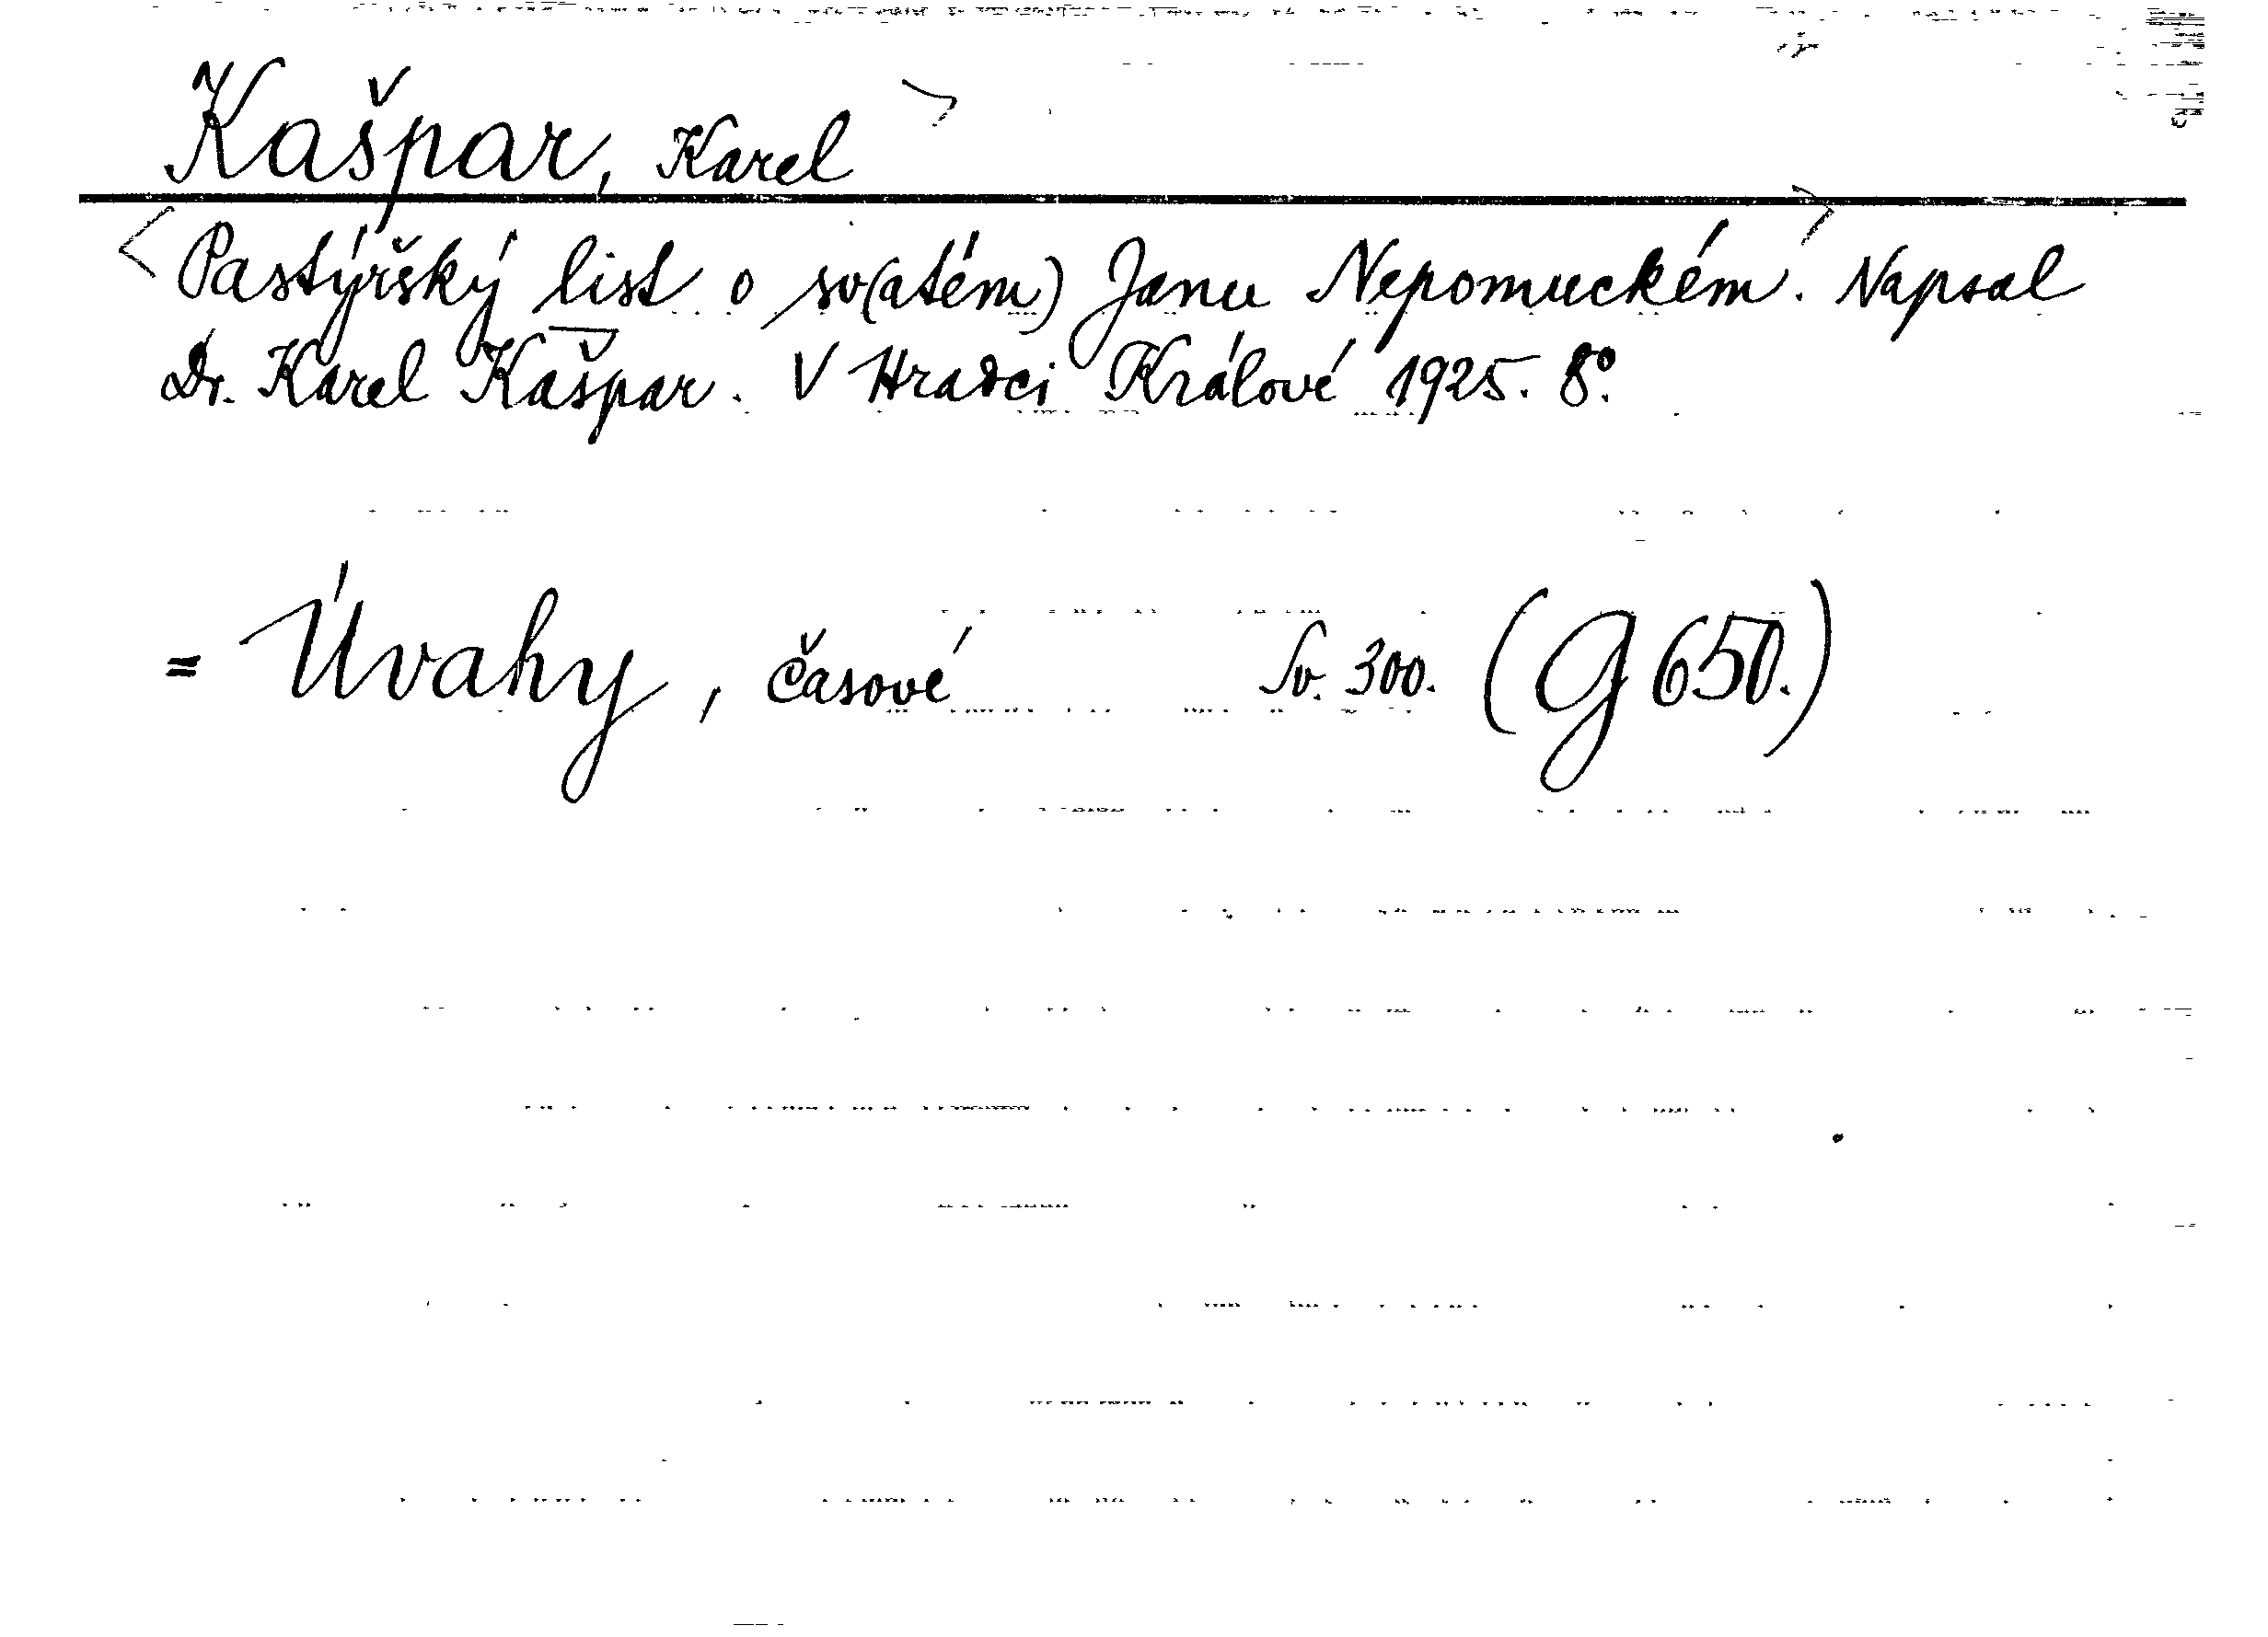 Kašpar, Karel >
<Pastýřský list o sv(atém) Janu Nepomuckém.> Napsal
Dr. Karel Kašpar. V Hradci Králové 1925. 8°.
= Úvahy, časové Sv. 300. (G 650.)